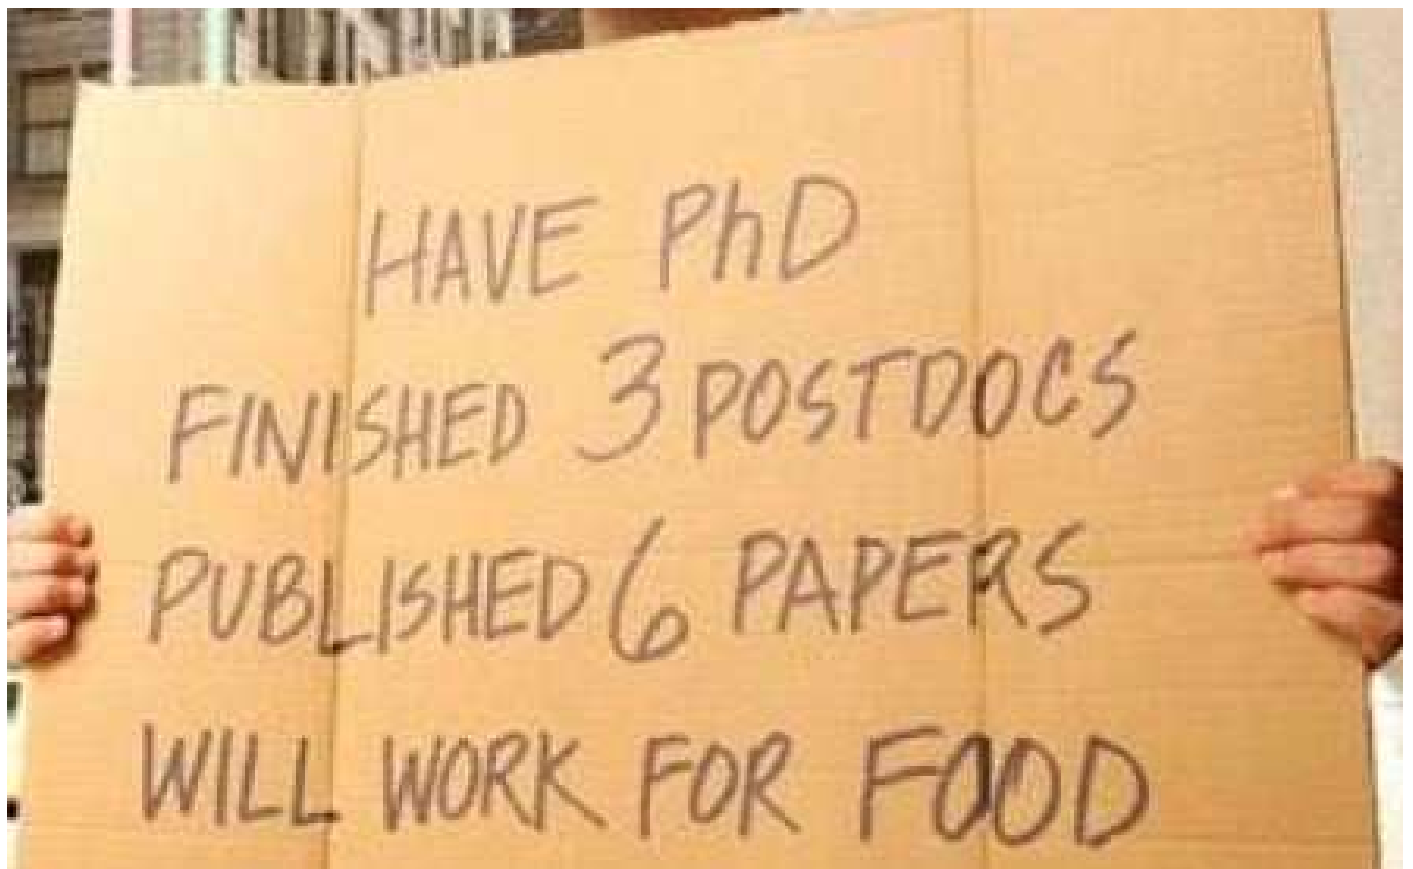 HAVE PhD
FINISHED 3 POSTDOCS
PUBLISHED 6 PAPERS
WILL WORK FOR FOOD